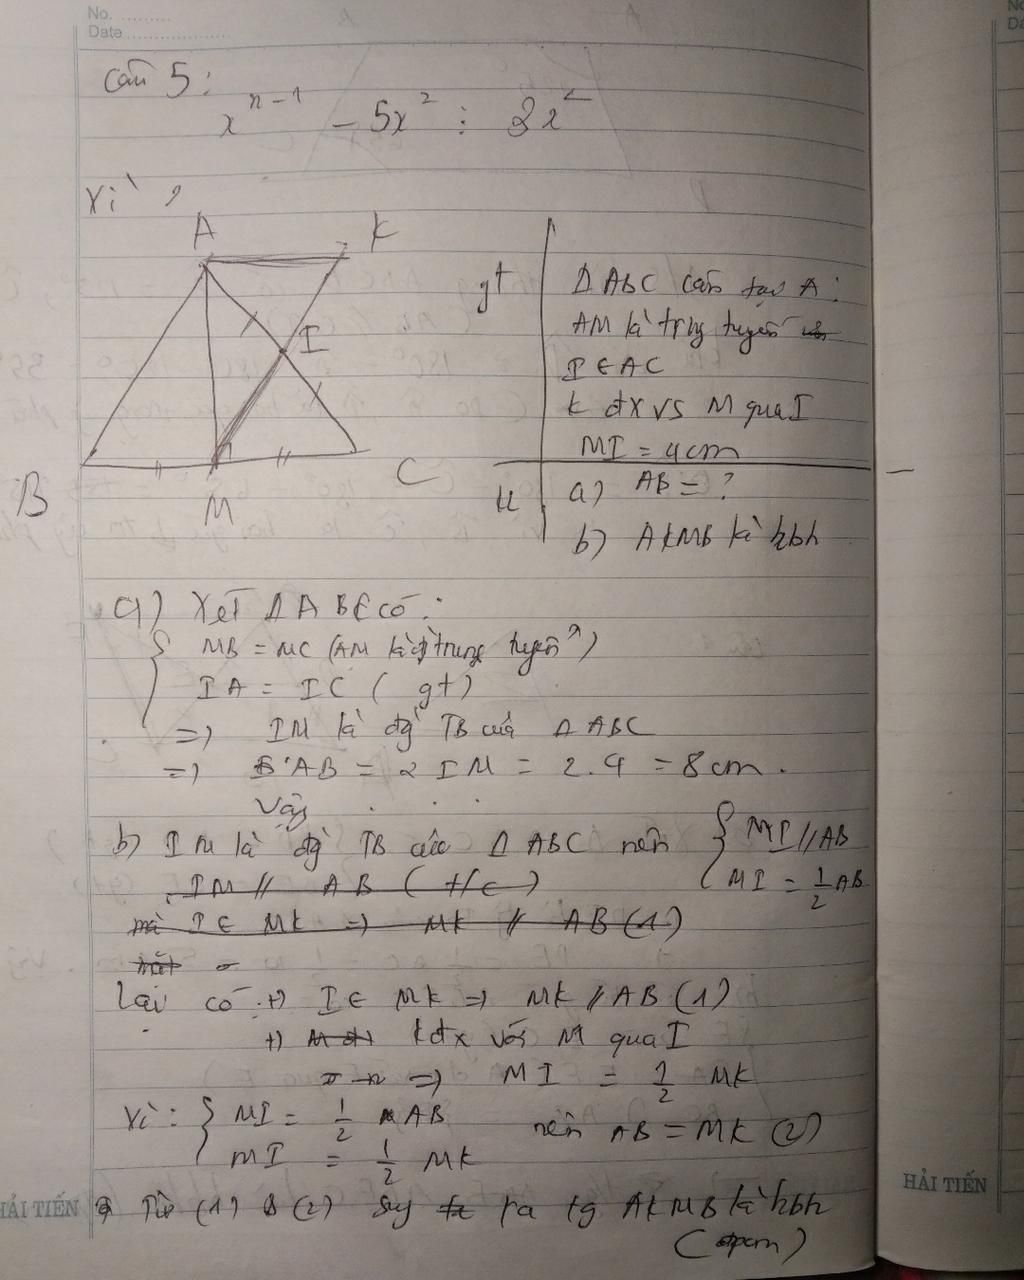 No. ..........
Date ....................
Câu 5:
x^{n-1} - 5x^2 : 3x^2
Vì ,
A K
I
B M C
gt
Δ ABC cân tại A:
AM là trug tuyến
I ∈ AC
K đx vs M qua I
MI = 4cm
kl
a) AB = ?
b) AKMB là hbh
a) Xét Δ ABC có:
MB = MC (AM là trung tuyến)
IA = IC (gt)
=> IM là đg TB của Δ ABC
=> AB = 2 IM = 2.4 = 8cm.
Vậy . . .
b) IM là đg TB của Δ ABC nên { MI // AB
MI = 1/2 AB
IM // AB (t/c)
mà I ∈ MK => MK // AB (1)
Lại có +) I ∈ MK => MK // AB (1)
+) K đx với M qua I
=> MI = 1/2 MK
Vì: { MI = 1/2 AB
MI = 1/2 MK
nên AB = MK (2)
Từ (1) & (2) suy ra tg AKMB là hbh
(đpcm)
HẢI TIẾN
HẢI TIẾN